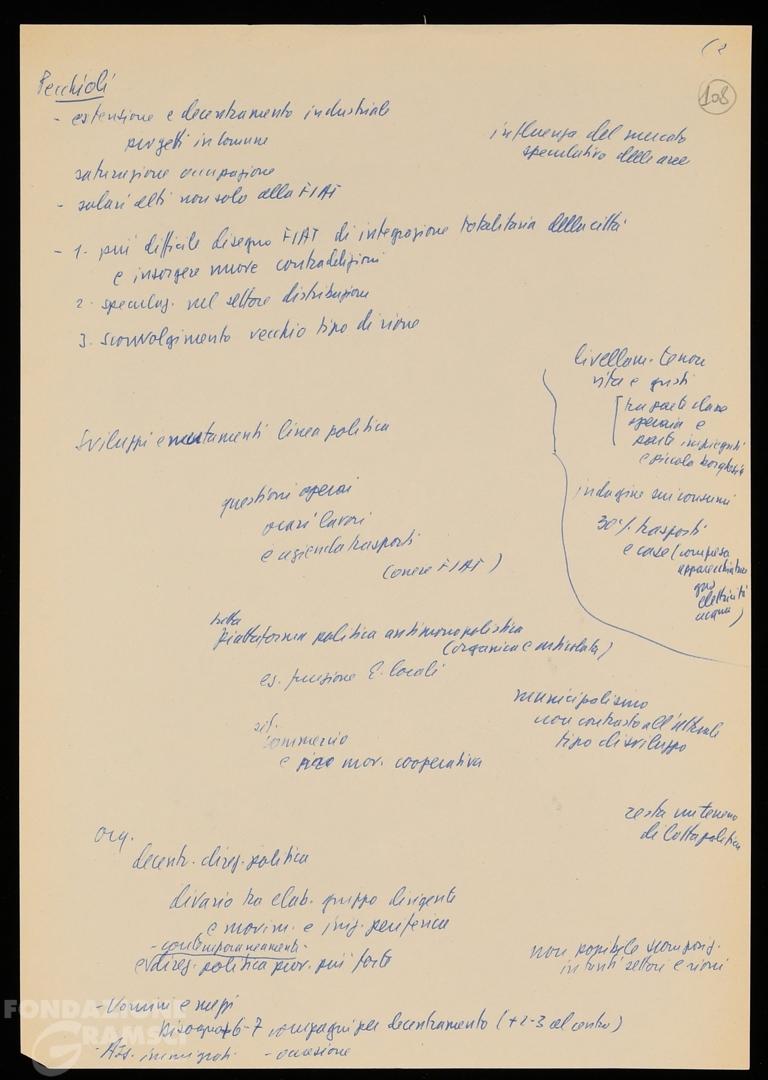 (2
108
Pecchioli
- estensione e decentramento industriale
progetti in comune
influenza del mercato
speculativo delle aree
saturazione occupazione
- salari alti non solo alla FIAT
- 1. più difficile disegno FIAT di integrazione totalitaria della città
e insorgere nuove contraddizioni
2. speculaz. nel settore distribuzione
3. sconvolgimento vecchio tipo di rione
livellam. tenore
vita e gusti
tra parte classe
operaia e
parte impiegati
e piccola borghesia
indagine sui consumi
30% trasporti
e case (compresa
apparecchiature
gas
elettricità
acqua)
Sviluppi e mutamenti linea politica
questioni operai
orari lavori
e azienda trasporti
(onere FIAT)
lotta
piattaforma politica antimonopolistica
(organica e articolata)
es. funzione E. locali
municipalismo
non contrasto all'attuale
tipo di sviluppo
commercio
e mov. cooperativa
resta un terreno
di lotta politica
org.
decentr. direz. politica
divario tra elab. gruppo dirigente
e movim. e iniz. periferica
- contemporaneamente -
direz. politica prov. più forte
non possibile scompos.
in tanti settori e rioni
- Uomini e mezzi
bisogna 6-7 compagni per decentramento (+2-3 al centro)
- Ass. immigrati - occasione
FONDAZIONE
GRAMSCI